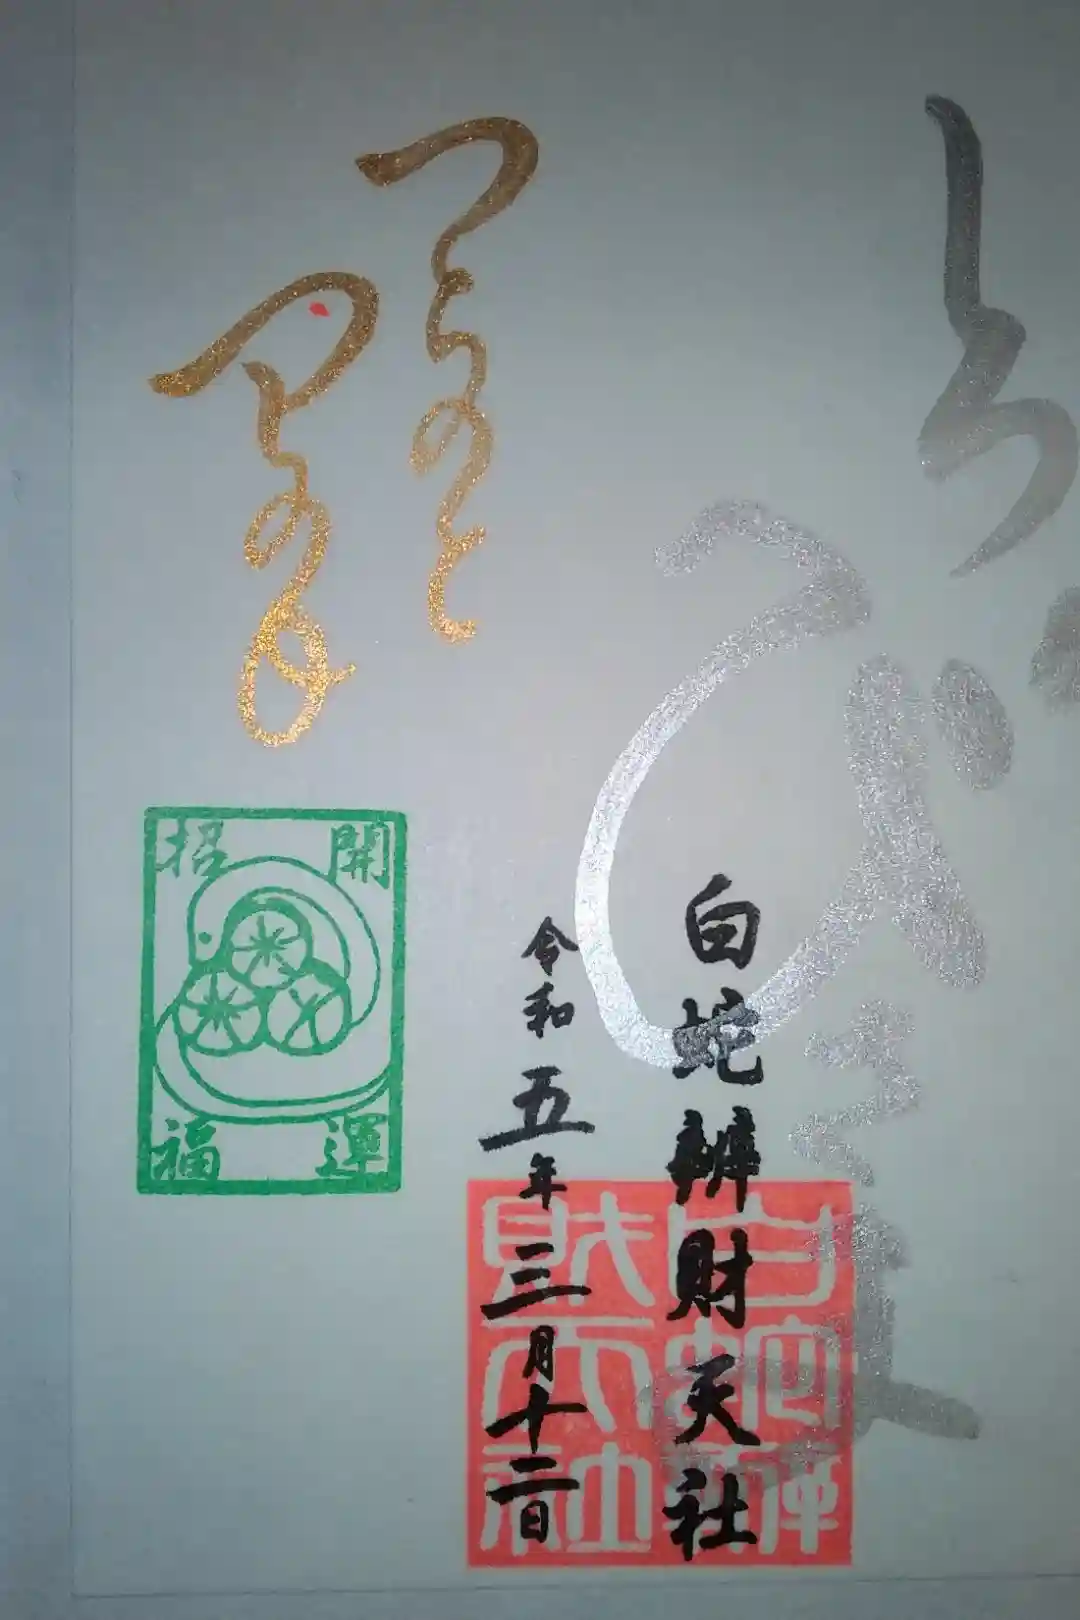 しろへび
さま
つちのと
つちのえ
白蛇辨財天社
令和五年三月十二日
開運
招福
白蛇辨
財天社